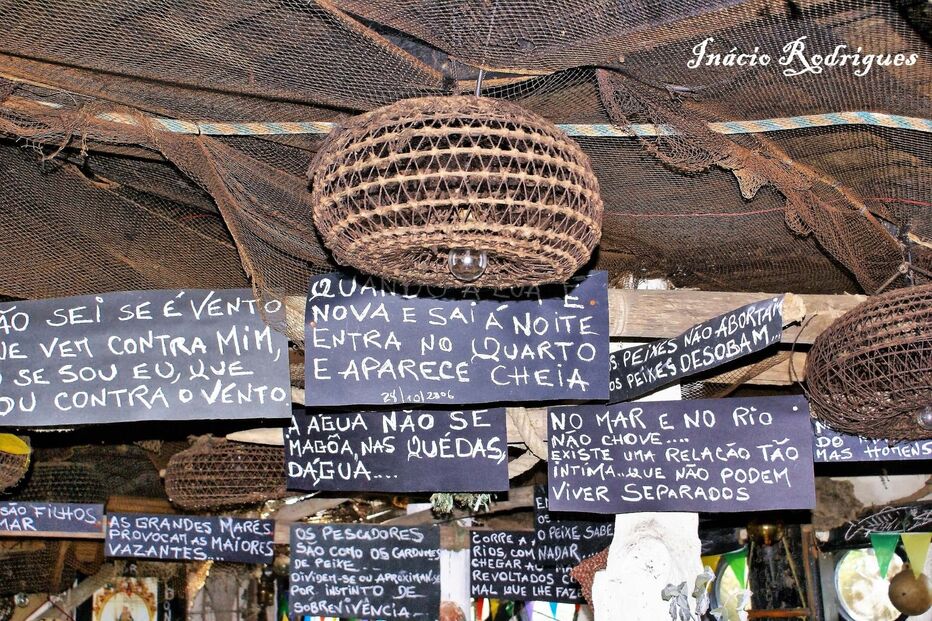 Inácio Rodrigues
ÃO SEI SE É VENTO
UE VEM CONTRA MIM,
O SE SOU EU, QUE
OU CONTRA O VENTO
QUANDO A LUA É
NOVA E SAI Á NOITE
ENTRA NO QUARTO
E APARECE CHEIA
24/10/2006
OS PEIXES NÃO ABORTAM
OS PEIXES DESOBAM...
A ÁGUA NÃO SE
MAGÔA, NAS QUÉDAS,
DÁGUA....
NO MAR E NO RIO
NÃO CHOVE....
EXISTE UMA RELAÇÃO TÃO
ÍNTIMA...QUE NÃO PODEM
VIVER SEPARADOS
MAS HOMENS
SÃO FILHOS
MAR
AS GRANDES MARÉS
PROVOCAM AS MAIORES
VAZANTES...
OS PESCADORES
SÃO COMO OS CARDUMES
DE PEIXE....
DIVIDEM-SE OU APROXIMAM-SE
POR INSTINTO DE
SOBREVIVÊNCIA...
CORRE A
RIOS, COM
CHEGAM AO
REVOLTADOS
MAL QUE LHE FAZ
O PEIXE SABE
NADAR